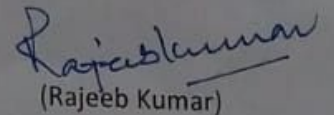 Rajeebkumar
(Rajeeb Kumar)